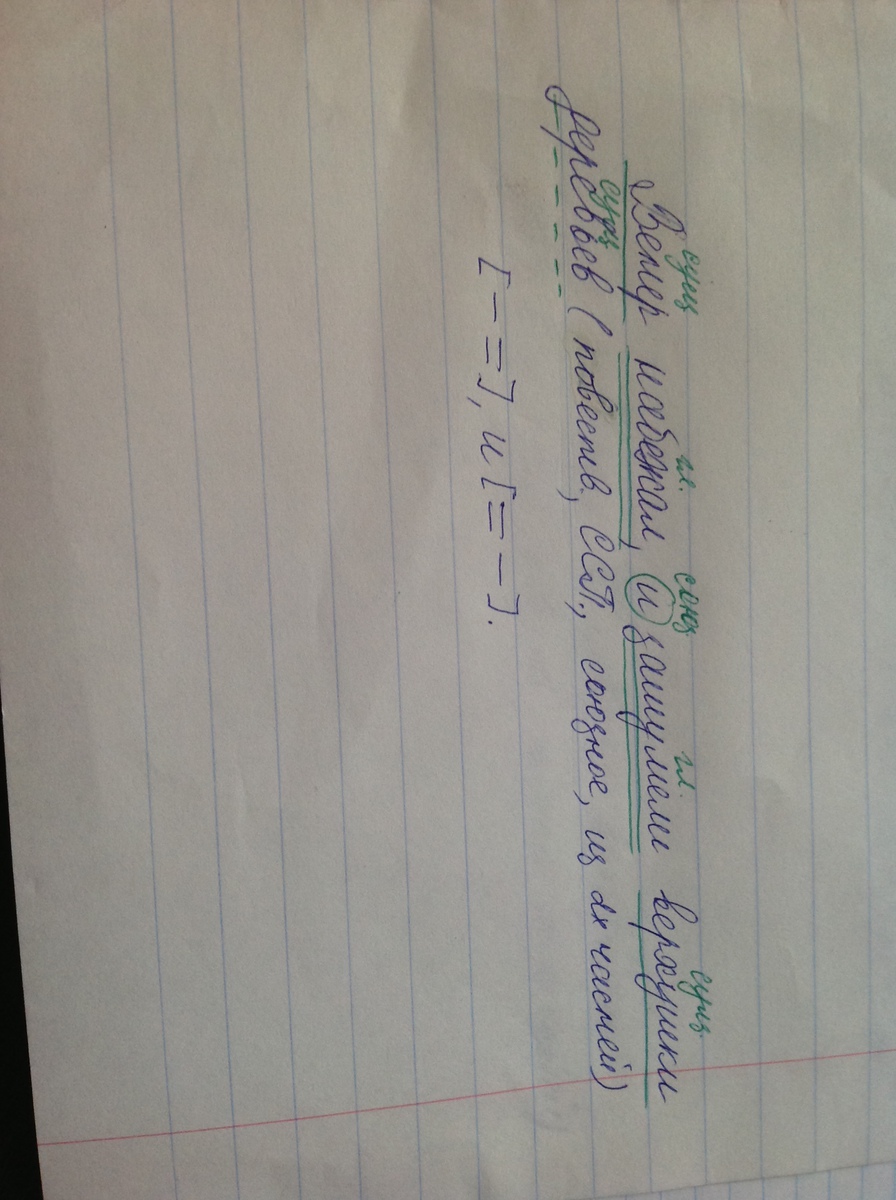 сущ гл. союз гл. сущ.
Ветер набежал, и зашумели верхушки
сущ
деревьев (повеств., ССП, союзное, из 2х частей)
[– =], и [= –].